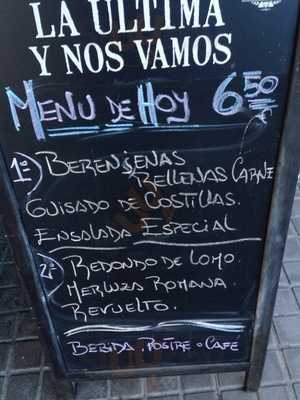 LA ULTIMA
Y NOS VAMOS
MENU DE HOY 6,50
1º BERENGENAS
RELLENAS CARNE
GUISADO DE COSTILLAS.
ENSALADA ESPECIAL
2º REDONDO DE LOMO.
MERLUZA ROMANA.
REVUELTO.
BEBIDA, POSTRE o CAFÉ